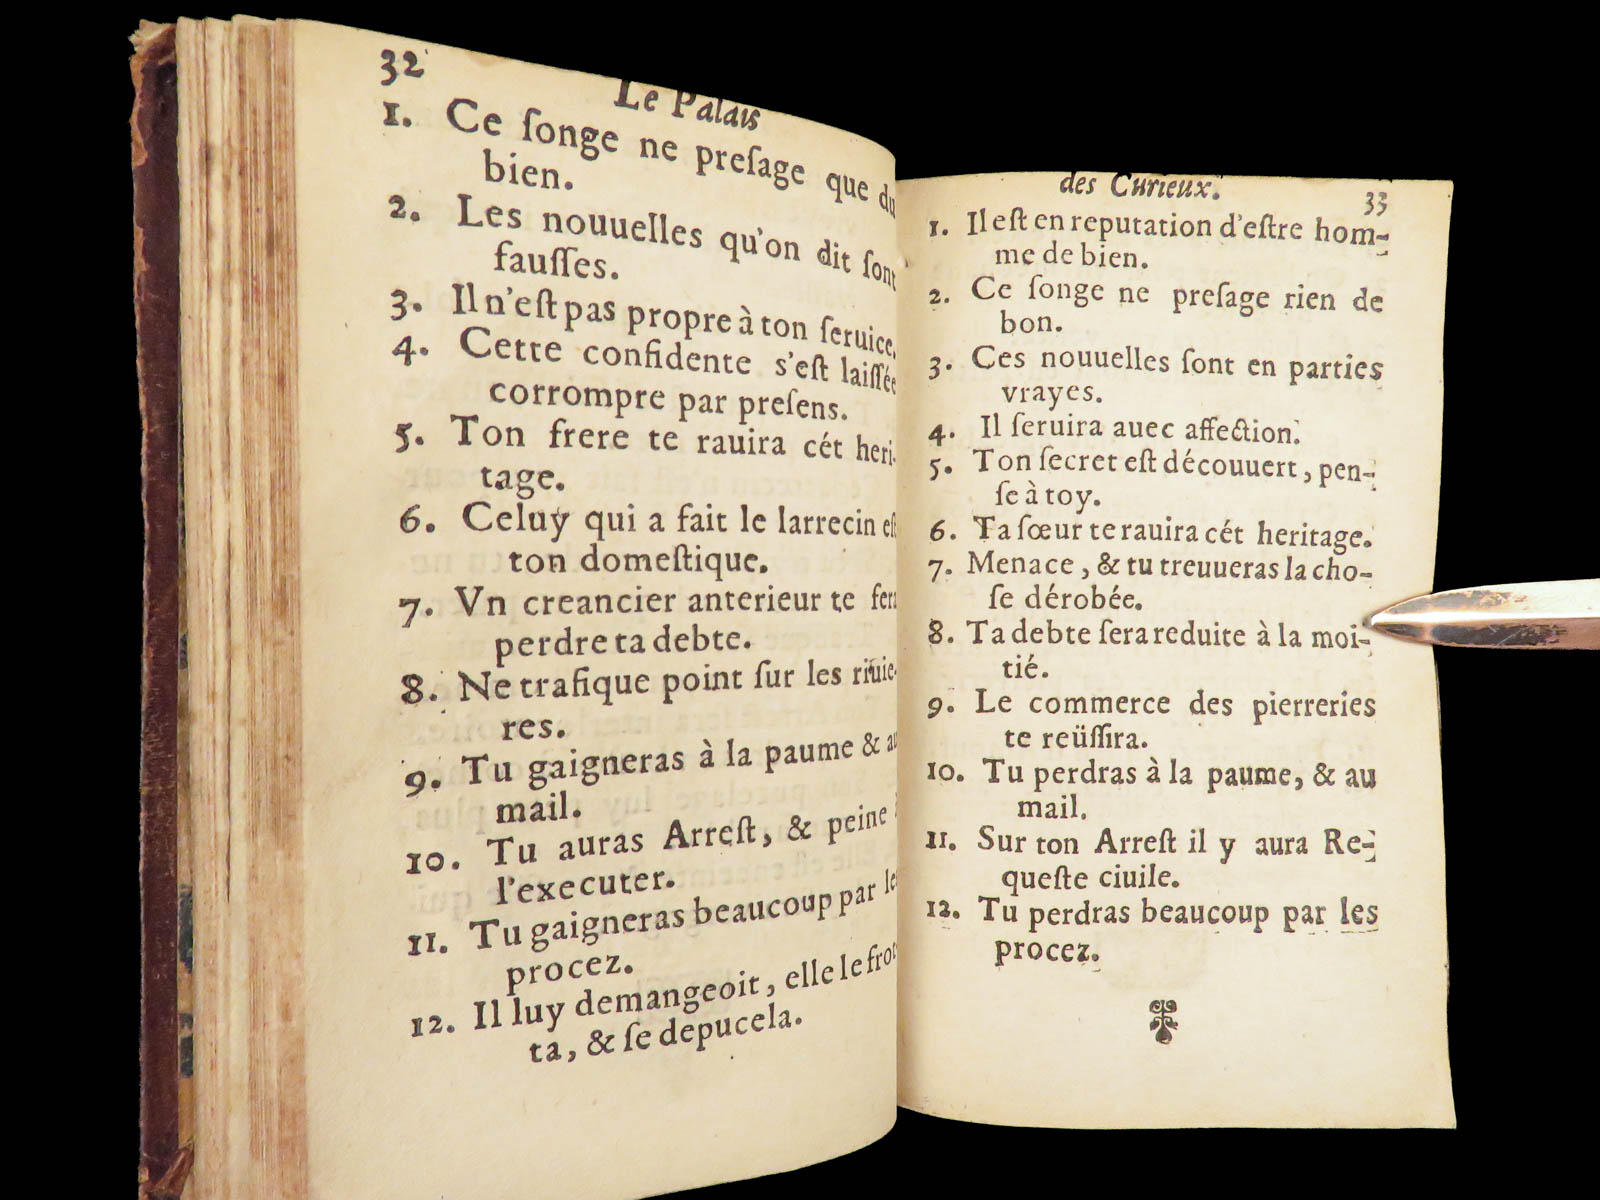 32
Le Palais
1. Ce ſonge ne preſage que du
bien.
2. Les nouuelles qu'on dit ſont
fauſſes.
3. Il n'eſt pas propre à ton ſeruice.
4. Cette confidente s'eſt laiſſée
corrompre par preſens.
5. Ton frere te rauira cét heri-
tage.
6. Celuy qui a fait le larrecin eſt
ton domeſtique.
7. Vn creancier anterieur te fera
perdre ta debte.
8. Ne trafique point ſur les riuie-
res.
9. Tu gaigneras à la paume & au
mail.
10. Tu auras Arreſt, & peine à
l'executer.
11. Tu gaigneras beaucoup par les
procez.
12. Il luy demangeoit, elle le frot-
ta, & ſe depucela.
des Curieux. 33
1. Il eſt en reputation d'eſtre hom-
me de bien.
2. Ce ſonge ne preſage rien de
bon.
3. Ces nouuelles ſont en parties
vrayes.
4. Il ſeruira auec affection.
5. Ton ſecret eſt découuert, pen-
ſe à toy.
6. Ta ſœur te rauira cét heritage.
7. Menace, & tu treuueras la cho-
ſe dérobée.
8. Ta debte ſera reduite à la moi-
tié.
9. Le commerce des pierreries
te reüſſira.
10. Tu perdras à la paume, & au
mail.
11. Sur ton Arreſt il y aura Re-
queſte ciuile.
12. Tu perdras beaucoup par les
procez.